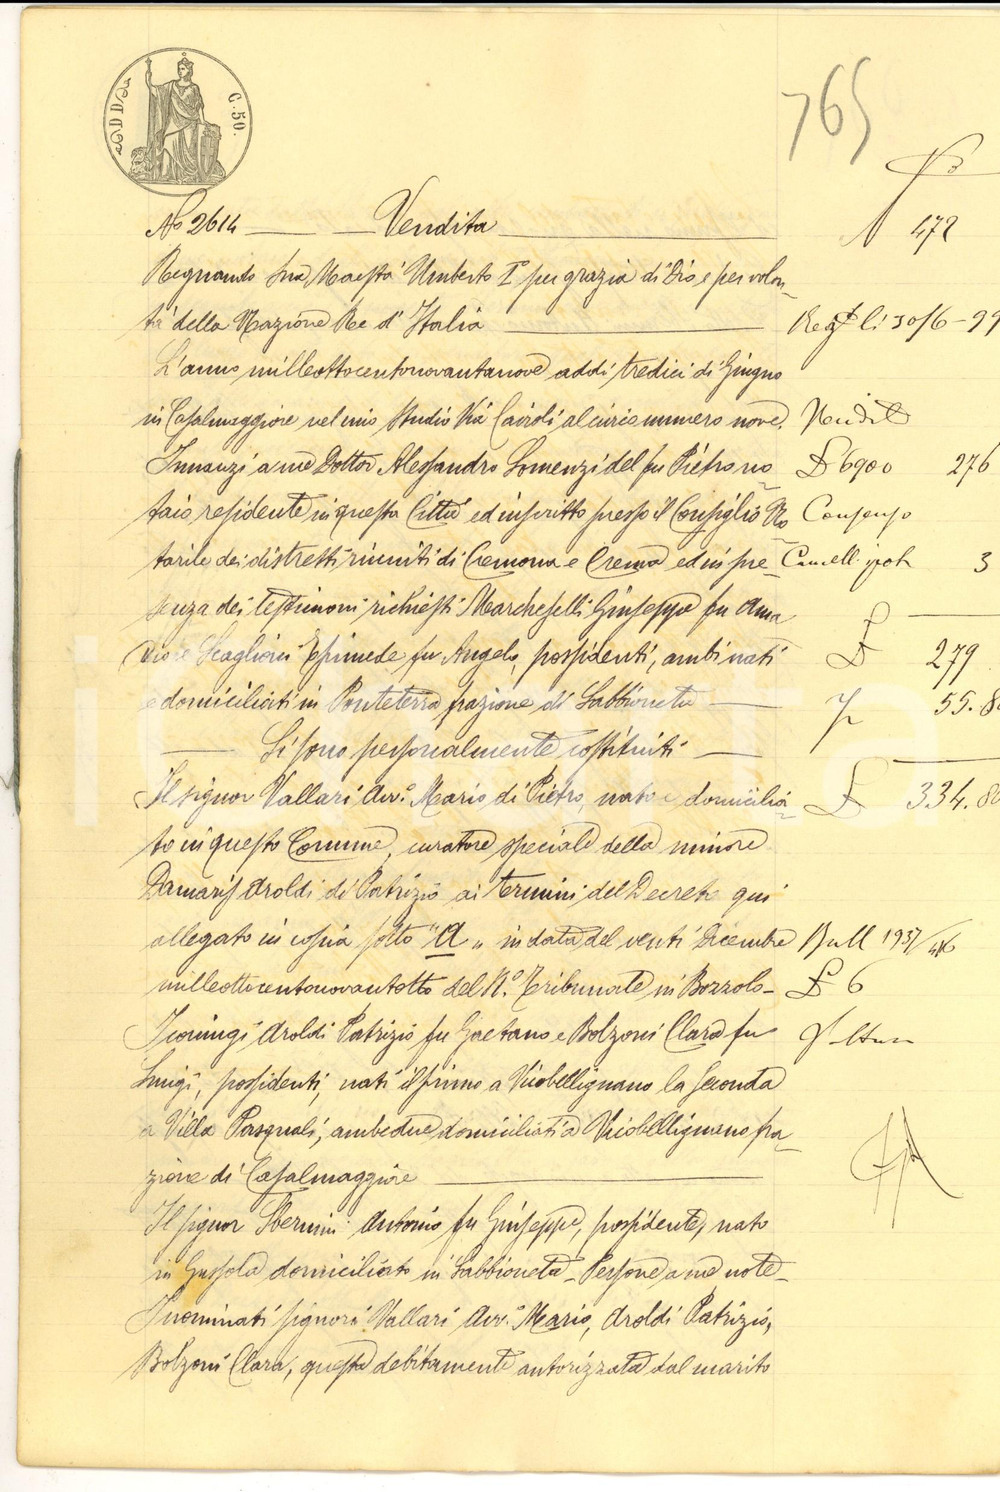 C. 50.
765
No 2614 Vendita
472
Regnando Sua Maestà Umberto I° per grazia di Dio e per volon-
tà della Nazione Re d'Italia
Regto li 30/6-99
L'anno milleottocentonovantanove addì tredici di Giugno
in Casalmaggiore nel mio Studio Via Cairoli al civico numero nove.
Vendita
Innanzi a me Dottor Alessandro Lomenzi del fu Pietro no-
£ 6900 276
taio residente in questa Città ed inscritto presso il Consiglio No-
Consenso
tarile dei distretti riuniti di Cremona e Crema ed in pre-
Cancell. ipot. 3
senza dei testimoni richiesti Marcheselli Giuseppe fu Ama-
dio e Scaglioni Epimede fu Angelo, possidenti, ambi nati
£ 279
e domiciliati in Ponteterra frazione di Sabbioneta
55.80
Si sono personalmente costituiti
Il signor Vallari Avv.° Mario di Pietro, nato e domicilia-
£ 334.80
to in questo Comune, curatore speciale della minore
Damaris Aroldi di Patrizio ai termini del Decreto qui
allegato in copia sotto "A" in data del venti Dicembre
Bull 1937/46
milleottocentonovantotto del R.° Tribunale in Bozzolo-
£ 6
I coniugi Aroldi Patrizio fu Gaetano e Bolzoni Clara fu
Luigi, possidenti, nati il primo a Vicobellignano la seconda
a Villa Pasquali, ambedue domiciliati a Vicobellignano fra-
zione di Casalmaggiore
Il signor Sbernini Antonio fu Giuseppe, possidente, nato
in Gussola domiciliato in Sabbioneta - Persone a me note -
I nominati signori Vallari Avv.° Mario, Aroldi Patrizio,
Bolzoni Clara, questa debitamente autorizzata dal marito